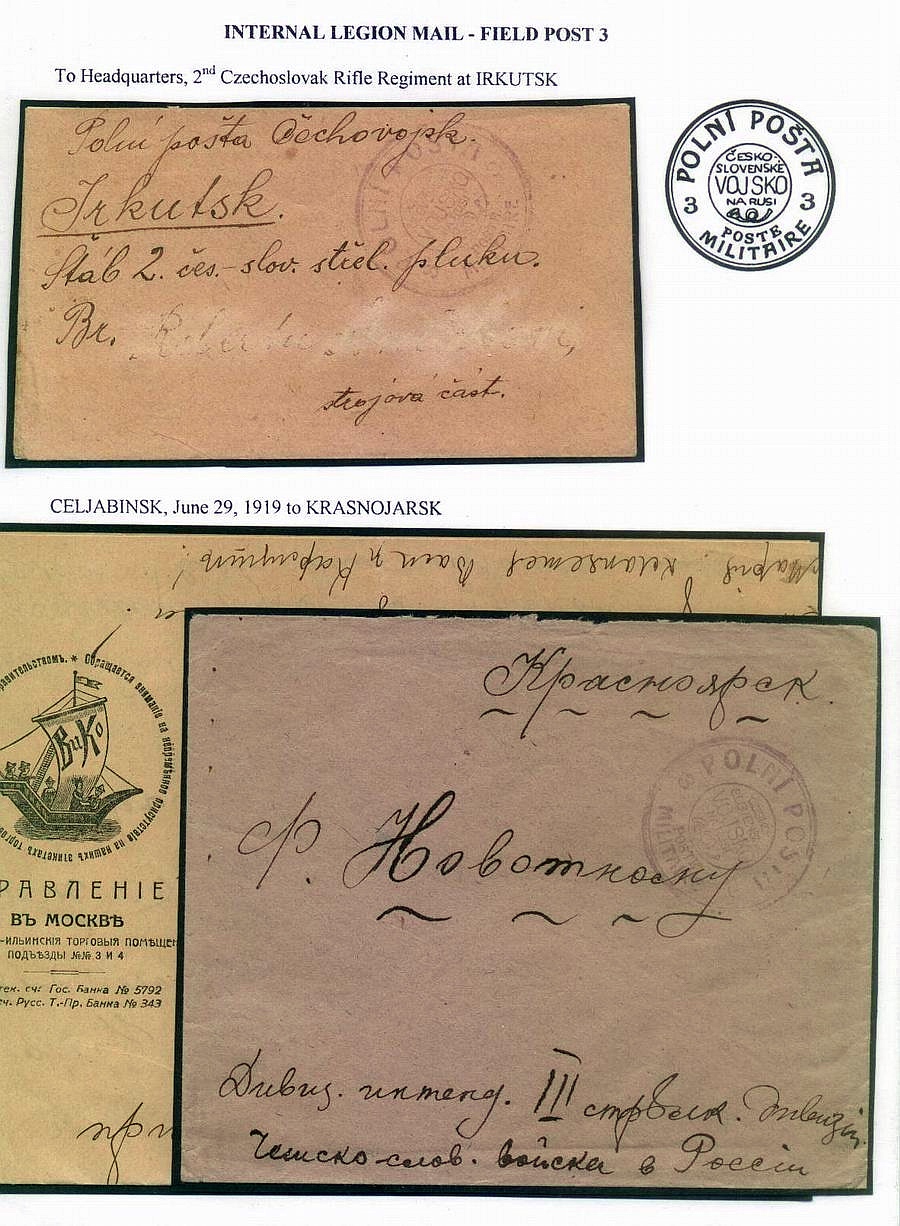 INTERNAL LEGION MAIL - FIELD POST 3
To Headquarters, 2nd Czechoslovak Rifle Regiment at IRKUTSK
Polní pošta Čechovojsk.
Irkutsk.
Štáb 2. čes.-slov. střel. pluku.
Br.
strojová část.
POLNÍ POŠTA
ČESKO-
SLOVENSKÉ
VOJSKO
NA RUSI
3 3
POSTE
MILITAIRE
CELJABINSK, June 29, 1919 to KRASNOJARSK
Обращается вниманіе на
на нашихъ этикетахъ
ВиКо
РАВЛЕНІЕ
ВЪ МОСКВѢ
-ИЛЬИНСКІЯ ТОРГОВЫЯ ПОМѢЩЕН
ПОДЪѢЗДЫ №№ 3 И 4
тек. сч: Гос. Банка № 5792
сч. Русс. Т.-Пр. Банка № 343
Красноярск
POLNÍ POŠTA
MILITAIRE
Ф. Новотному
Дивиз. интенд. III стрѣлк. дивизіи
Чешско-слов. войска в Россіи